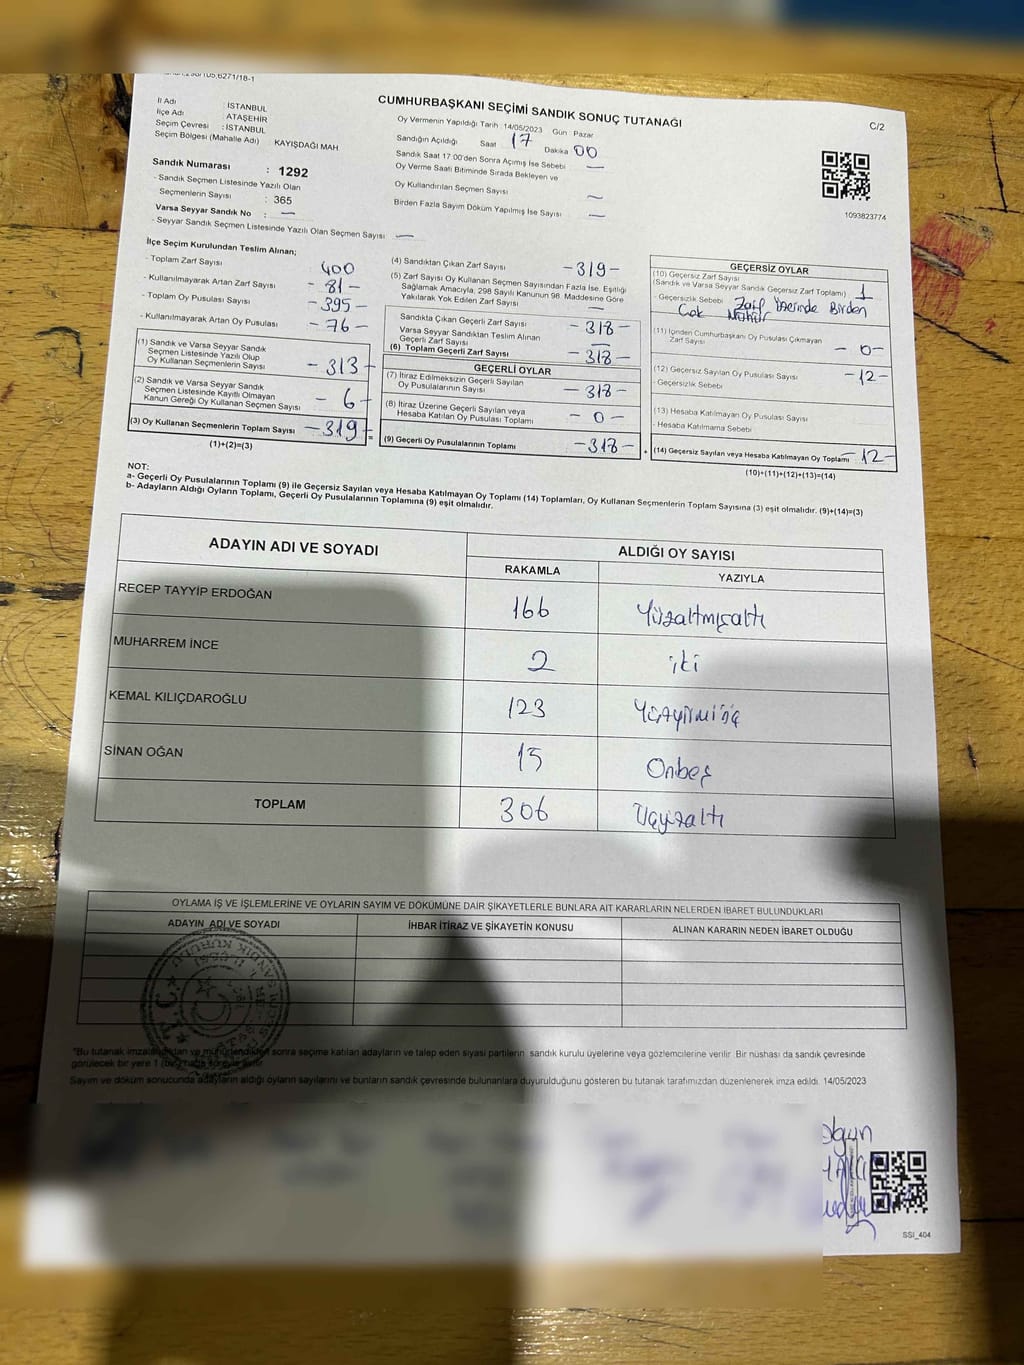 CUMHURBAŞKANI SEÇİMİ SANDIK SONUÇ TUTANAĞI
C/2
İl Adı : İSTANBUL
İlçe Adı : ATAŞEHİR
Seçim Çevresi : İSTANBUL
Seçim Bölgesi (Mahalle Adı) : KAYIŞDAĞI MAH
Sandık Numarası : 1292
- Sandık Seçmen Listesinde Yazılı Olan
Seçmenlerin Sayısı : 365
Varsa Seyyar Sandık No : —
- Seyyar Sandık Seçmen Listesinde Yazılı Olan Seçmen Sayısı —
Oy Vermenin Yapıldığı Tarih : 14/05/2023 Gün : Pazar
Sandığın Açıldığı Saat 17 Dakika 00
Sandık Saat 17:00'den Sonra Açımış İse Sebebi —
Oy Verme Saati Bitiminde Sırada Bekleyen ve
Oy Kullandırılan Seçmen Sayısı —
Birden Fazla Sayım Döküm Yapılmış İse Sayısı —
1093823774
İlçe Seçim Kurulundan Teslim Alınan;
- Toplam Zarf Sayısı 400
- Kullanılmayarak Artan Zarf Sayısı - 81 -
- Toplam Oy Pusulası Sayısı - 395 -
- Kullanılmayarak Artan Oy Pusulası - 76 -
(1) Sandık ve Varsa Seyyar Sandık
Seçmen Listesinde Yazılı Olup
Oy Kullanan Seçmenlerin Sayısı - 313 -
(2) Sandık ve Varsa Seyyar Sandık
Seçmen Listesinde Kayıtlı Olmayan
Kanun Gereği Oy Kullanan Seçmen Sayısı - 6 -
(3) Oy Kullanan Seçmenlerin Toplam Sayısı - 319 -
(1)+(2)=(3)
(4) Sandıktan Çıkan Zarf Sayısı - 319 -
(5) Zarf Sayısı Oy Kullanan Seçmen Sayısından Fazla İse, Eşitliği
Sağlamak Amacıyla, 298 Sayılı Kanunun 98. Maddesine Göre
Yakılarak Yok Edilen Zarf Sayısı —
Sandıkta Çıkan Geçerli Zarf Sayısı - 318 -
Varsa Seyyar Sandıktan Teslim Alınan
Geçerli Zarf Sayısı —
(6) Toplam Geçerli Zarf Sayısı - 318 -
GEÇERLİ OYLAR
(7) İtiraz Edilmeksizin Geçerli Sayılan
Oy Pusulalarının Sayısı - 318 -
(8) İtiraz Üzerine Geçerli Sayılan veya
Hesaba Katılan Oy Pusulası Toplamı - 0 -
(9) Geçerli Oy Pusulalarının Toplamı - 318 -
GEÇERSİZ OYLAR
(10) Geçersiz Zarf Sayısı
(Sandık ve Varsa Seyyar Sandık Geçersiz Zarf Toplamı) 1
- Geçersizlik Sebebi Zarf Üzerinde Birden
Çok Mühür
(11) İçinden Cumhurbaşkanı Oy Pusulası Çıkmayan
Zarf Sayısı - 0 -
(12) Geçersiz Sayılan Oy Pusulası Sayısı - 12 -
- Geçersizlik Sebebi
(13) Hesaba Katılmayan Oy Pusulası Sayısı
- Hesaba Katılmama Sebebi
(14) Geçersiz Sayılan veya Hesaba Katılmayan Oy Toplamı - 12 -
(10)+(11)+(12)+(13)=(14)
NOT:
a- Geçerli Oy Pusulalarının Toplamı (9) ile Geçersiz Sayılan veya Hesaba Katılmayan Oy Toplamı (14) Toplamları, Oy Kullanan Seçmenlerin Toplam Sayısına (3) eşit olmalıdır. (9)+(14)=(3)
b- Adayların Aldığı Oyların Toplamı, Geçerli Oy Pusulalarının Toplamına (9) eşit olmalıdır.
ADAYIN ADI VE SOYADI
ALDIĞI OY SAYISI
RAKAMLA YAZIYLA
RECEP TAYYİP ERDOĞAN 166 Yüzaltmışaltı
MUHARREM İNCE 2 iki
KEMAL KILIÇDAROĞLU 123 Yüzyirmiüç
SİNAN OĞAN 15 Onbeş
TOPLAM 306 Üçyüzaltı
OYLAMA İŞ VE İŞLEMLERİNE VE OYLARIN SAYIM VE DÖKÜMÜNE DAİR ŞİKAYETLERLE BUNLARA AİT KARARLARIN NELERDEN İBARET BULUNDUKLARI
ADAYIN ADI VE SOYADI İHBAR İTİRAZ VE ŞİKAYETİN KONUSU ALINAN KARARIN NEDEN İBARET OLDUĞU
*Bu tutanak imzalandıktan ve mühürlendikten sonra seçime katılan adayların ve talep eden siyasi partilerin sandık kurulu üyelerine veya gözlemcilerine verilir. Bir nüshası da sandık çevresinde
görülecek bir yere 1 (bir) hafta süreyle asılır.
Sayım ve döküm sonucunda adayların aldığı oyların sayılarını ve bunların sandık çevresinde bulunanlara duyurulduğunu gösteren bu tutanak tarafımızdan düzenlenerek imza edildi. 14/05/2023
SSI_404